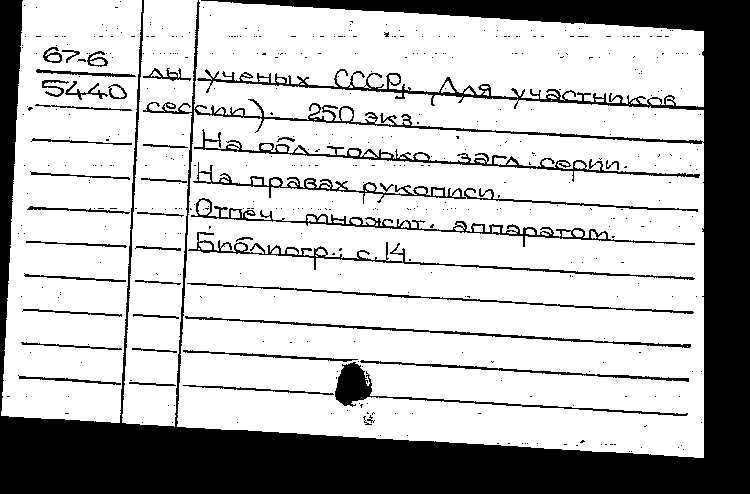 67-6
5440
лы ученых СССР. Для участников
сессии). 250 экз.
На обл. только загл. серии.
На правах рукописи.
Отпеч. множит. аппаратом.
Библиогр.: с. 14.